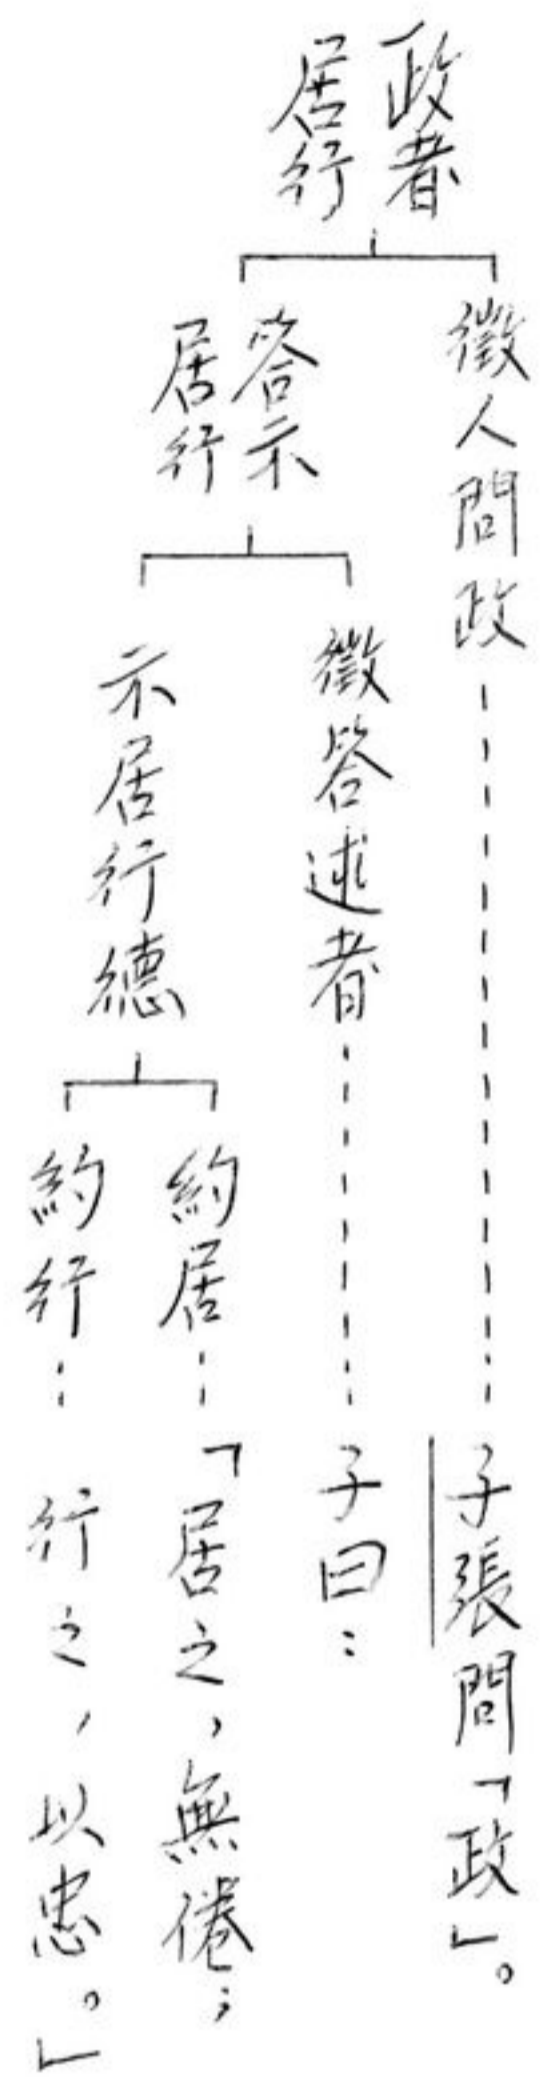 政者
居行
徵人問政
子張問「政」。
答示
居行
徵答述者
子曰：
示居行德
約居：
「居之，無倦；
約行：
行之，以忠。」